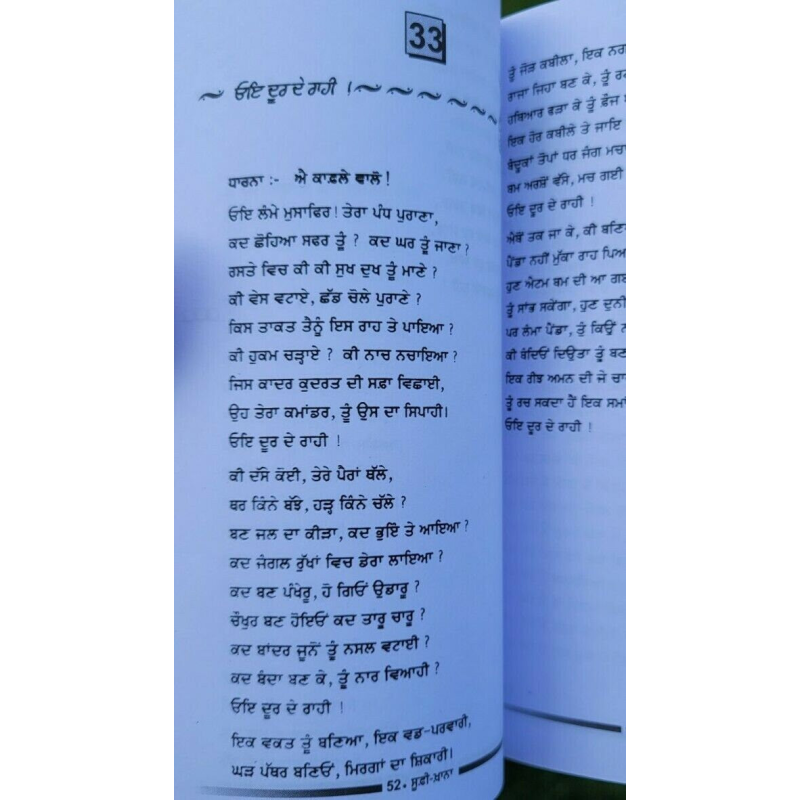 33
ਓਇ ਦੂਰ ਦੇ ਰਾਹੀ !
ਧਾਰਨਾ :- ਐ ਕਾਫ਼ਲੇ ਵਾਲੋ !
ਓਇ ਲੰਮੇ ਮੁਸਾਫਿਰ! ਤੇਰਾ ਪੰਧ ਪੁਰਾਣਾ,
ਕਦ ਛੋਹਿਆ ਸਫਰ ਤੂੰ ? ਕਦ ਘਰ ਤੂੰ ਜਾਣਾ ?
ਰਸਤੇ ਵਿਚ ਕੀ ਕੀ ਸੁਖ ਦੁਖ ਤੂੰ ਮਾਣੇ ?
ਕੀ ਵੇਸ ਵਟਾਏ, ਛੱਡ ਚੋਲੇ ਪੁਰਾਣੇ ?
ਕਿਸ ਤਾਕਤ ਤੈਨੂੰ ਇਸ ਰਾਹ ਤੇ ਪਾਇਆ ?
ਕੀ ਹੁਕਮ ਚੜ੍ਹਾਏ ? ਕੀ ਨਾਚ ਨਚਾਇਆ ?
ਜਿਸ ਕਾਦਰ ਕੁਦਰਤ ਦੀ ਸਫ਼ਾ ਵਿਛਾਈ,
ਉਹ ਤੇਰਾ ਕਮਾਂਡਰ, ਤੂੰ ਉਸ ਦਾ ਸਿਪਾਹੀ।
ਓਇ ਦੂਰ ਦੇ ਰਾਹੀ !
ਕੀ ਦੱਸੇ ਕੋਈ, ਤੇਰੇ ਪੈਰਾਂ ਥੱਲੇ,
ਥਰ ਕਿੰਨੇ ਬੱਝੇ, ਹੜ੍ਹ ਕਿੰਨੇ ਚੱਲੇ ?
ਬਣ ਜਲ ਦਾ ਕੀੜਾ, ਕਦ ਭੁਇੰ ਤੇ ਆਇਆ ?
ਕਦ ਜੰਗਲ ਰੁੱਖਾਂ ਵਿਚ ਡੇਰਾ ਲਾਇਆ ?
ਕਦ ਬਣ ਪੰਖੇਰੂ, ਹੋ ਗਿਓਂ ਉਡਾਰੂ ?
ਚੌਖੁਰ ਬਣ ਹੋਇਓਂ ਕਦ ਤਾਰੂ ਚਾਰੂ ?
ਕਦ ਬਾਂਦਰ ਜੂਨੋਂ ਤੂੰ ਨਸਲ ਵਟਾਈ ?
ਕਦ ਬੰਦਾ ਬਣ ਕੇ, ਤੂੰ ਨਾਰ ਵਿਆਹੀ ?
ਓਇ ਦੂਰ ਦੇ ਰਾਹੀ !
ਇਕ ਵਕਤ ਤੂੰ ਬਣਿਆ, ਇਕ ਵਡ-ਪਰਵਾਰੀ,
ਘੜ ਪੱਥਰ ਬਣਿਓਂ, ਮਿਰਗਾਂ ਦਾ ਸ਼ਿਕਾਰੀ।
52 • ਸੂਫ਼ੀ-ਖ਼ਾਨਾ
ਤੂੰ ਜੋੜ ਕਬੀਲਾ, ਇਕ
ਰਾਜਾ ਜਿਹਾ ਬਣ ਕੇ, ਤੂੰ
ਹਥਿਆਰ ਫੜਾ ਕੇ ਤੂੰ ਫ਼ੌਜ
ਇਕ ਹੋਰ ਕਬੀਲੇ ਤੇ ਜਾਇ
ਬੰਦੂਕਾਂ ਤੋਪਾਂ ਧਰ ਜੰਗ
ਬਮ ਅਰਸ਼ੋਂ ਵੱਸੇ, ਮਚ ਗਈ
ਓਇ ਦੂਰ ਦੇ ਰਾਹੀ !
ਐਥੋਂ ਤਕ ਜਾ ਕੇ, ਕੀ
ਪੈਂਡਾ ਨਹੀਂ ਮੁੱਕਾ ਰਾਹ
ਹੁਣ ਐਟਮ ਬਮ ਦੀ ਆ
ਤੂੰ ਸਾਂਭ ਸਕੇਂਗਾ, ਹੁਣ
ਪਰ ਲੰਮਾ ਪੈਂਡਾ, ਤੂੰ ਕਿਉਂ
ਕੀ ਬੰਦਿਓਂ ਦਿਉਤਾ ਤੂੰ
ਇਕ ਰੀਝ ਅਮਨ ਦੀ ਜੇ
ਤੂੰ ਰਚ ਸਕਦਾ ਹੈਂ ਇਕ
ਓਇ ਦੂਰ ਦੇ ਰਾਹੀ !